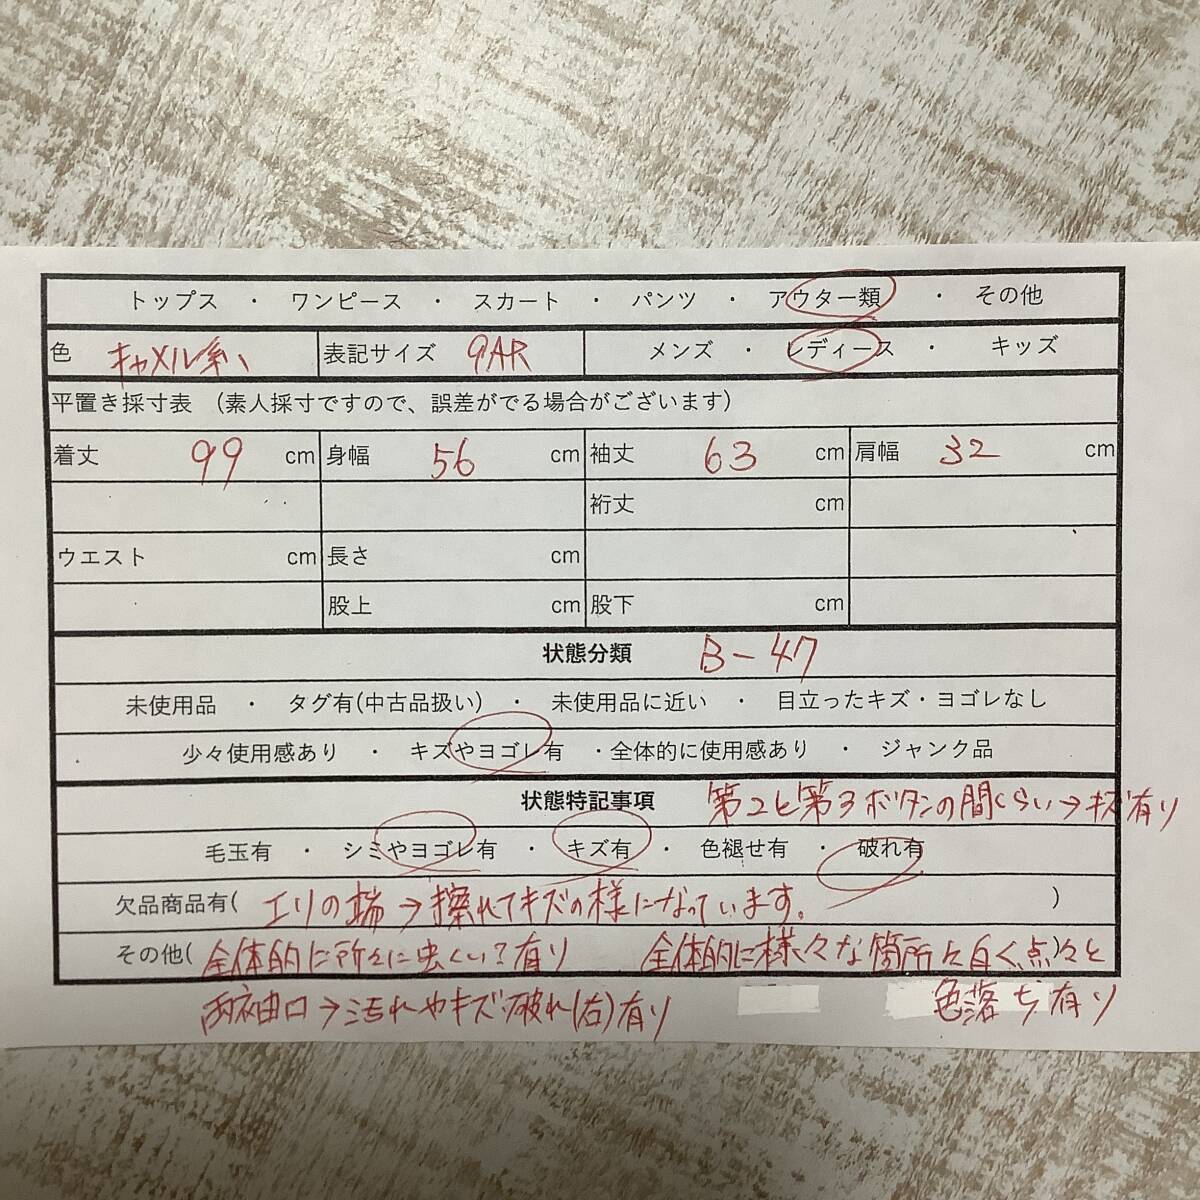 トップス ・ ワンピース ・ スカート ・ パンツ ・ アウター類 ・ その他
色 キャメル系 表記サイズ 9AR メンズ ・ レディース ・ キッズ
平置き採寸表 (素人採寸ですので、誤差がでる場合がございます)
着丈 99 cm 身幅 56 cm 袖丈 63 cm 肩幅 32 cm
裄丈 cm
ウエスト cm 長さ cm
股上 cm 股下 cm
状態分類 B-47
未使用品 ・ タグ有(中古品扱い) ・ 未使用品に近い ・ 目立ったキズ・ヨゴレなし
少々使用感あり ・ キズやヨゴレ有 ・全体的に使用感あり ・ ジャンク品
状態特記事項 第2と第3ボタンの間くらい→キズ有り
毛玉有 ・ シミやヨゴレ有 ・ キズ有 ・ 色褪せ有 ・ 破れ有
欠品商品有( エリの端→擦れてキズの様になっています。 )
その他( 全体的に所々に虫くい?有り 全体的に様々な箇所に白く点々と )
両袖口→汚れやキズ・破れ(右)有り 色落ち有り